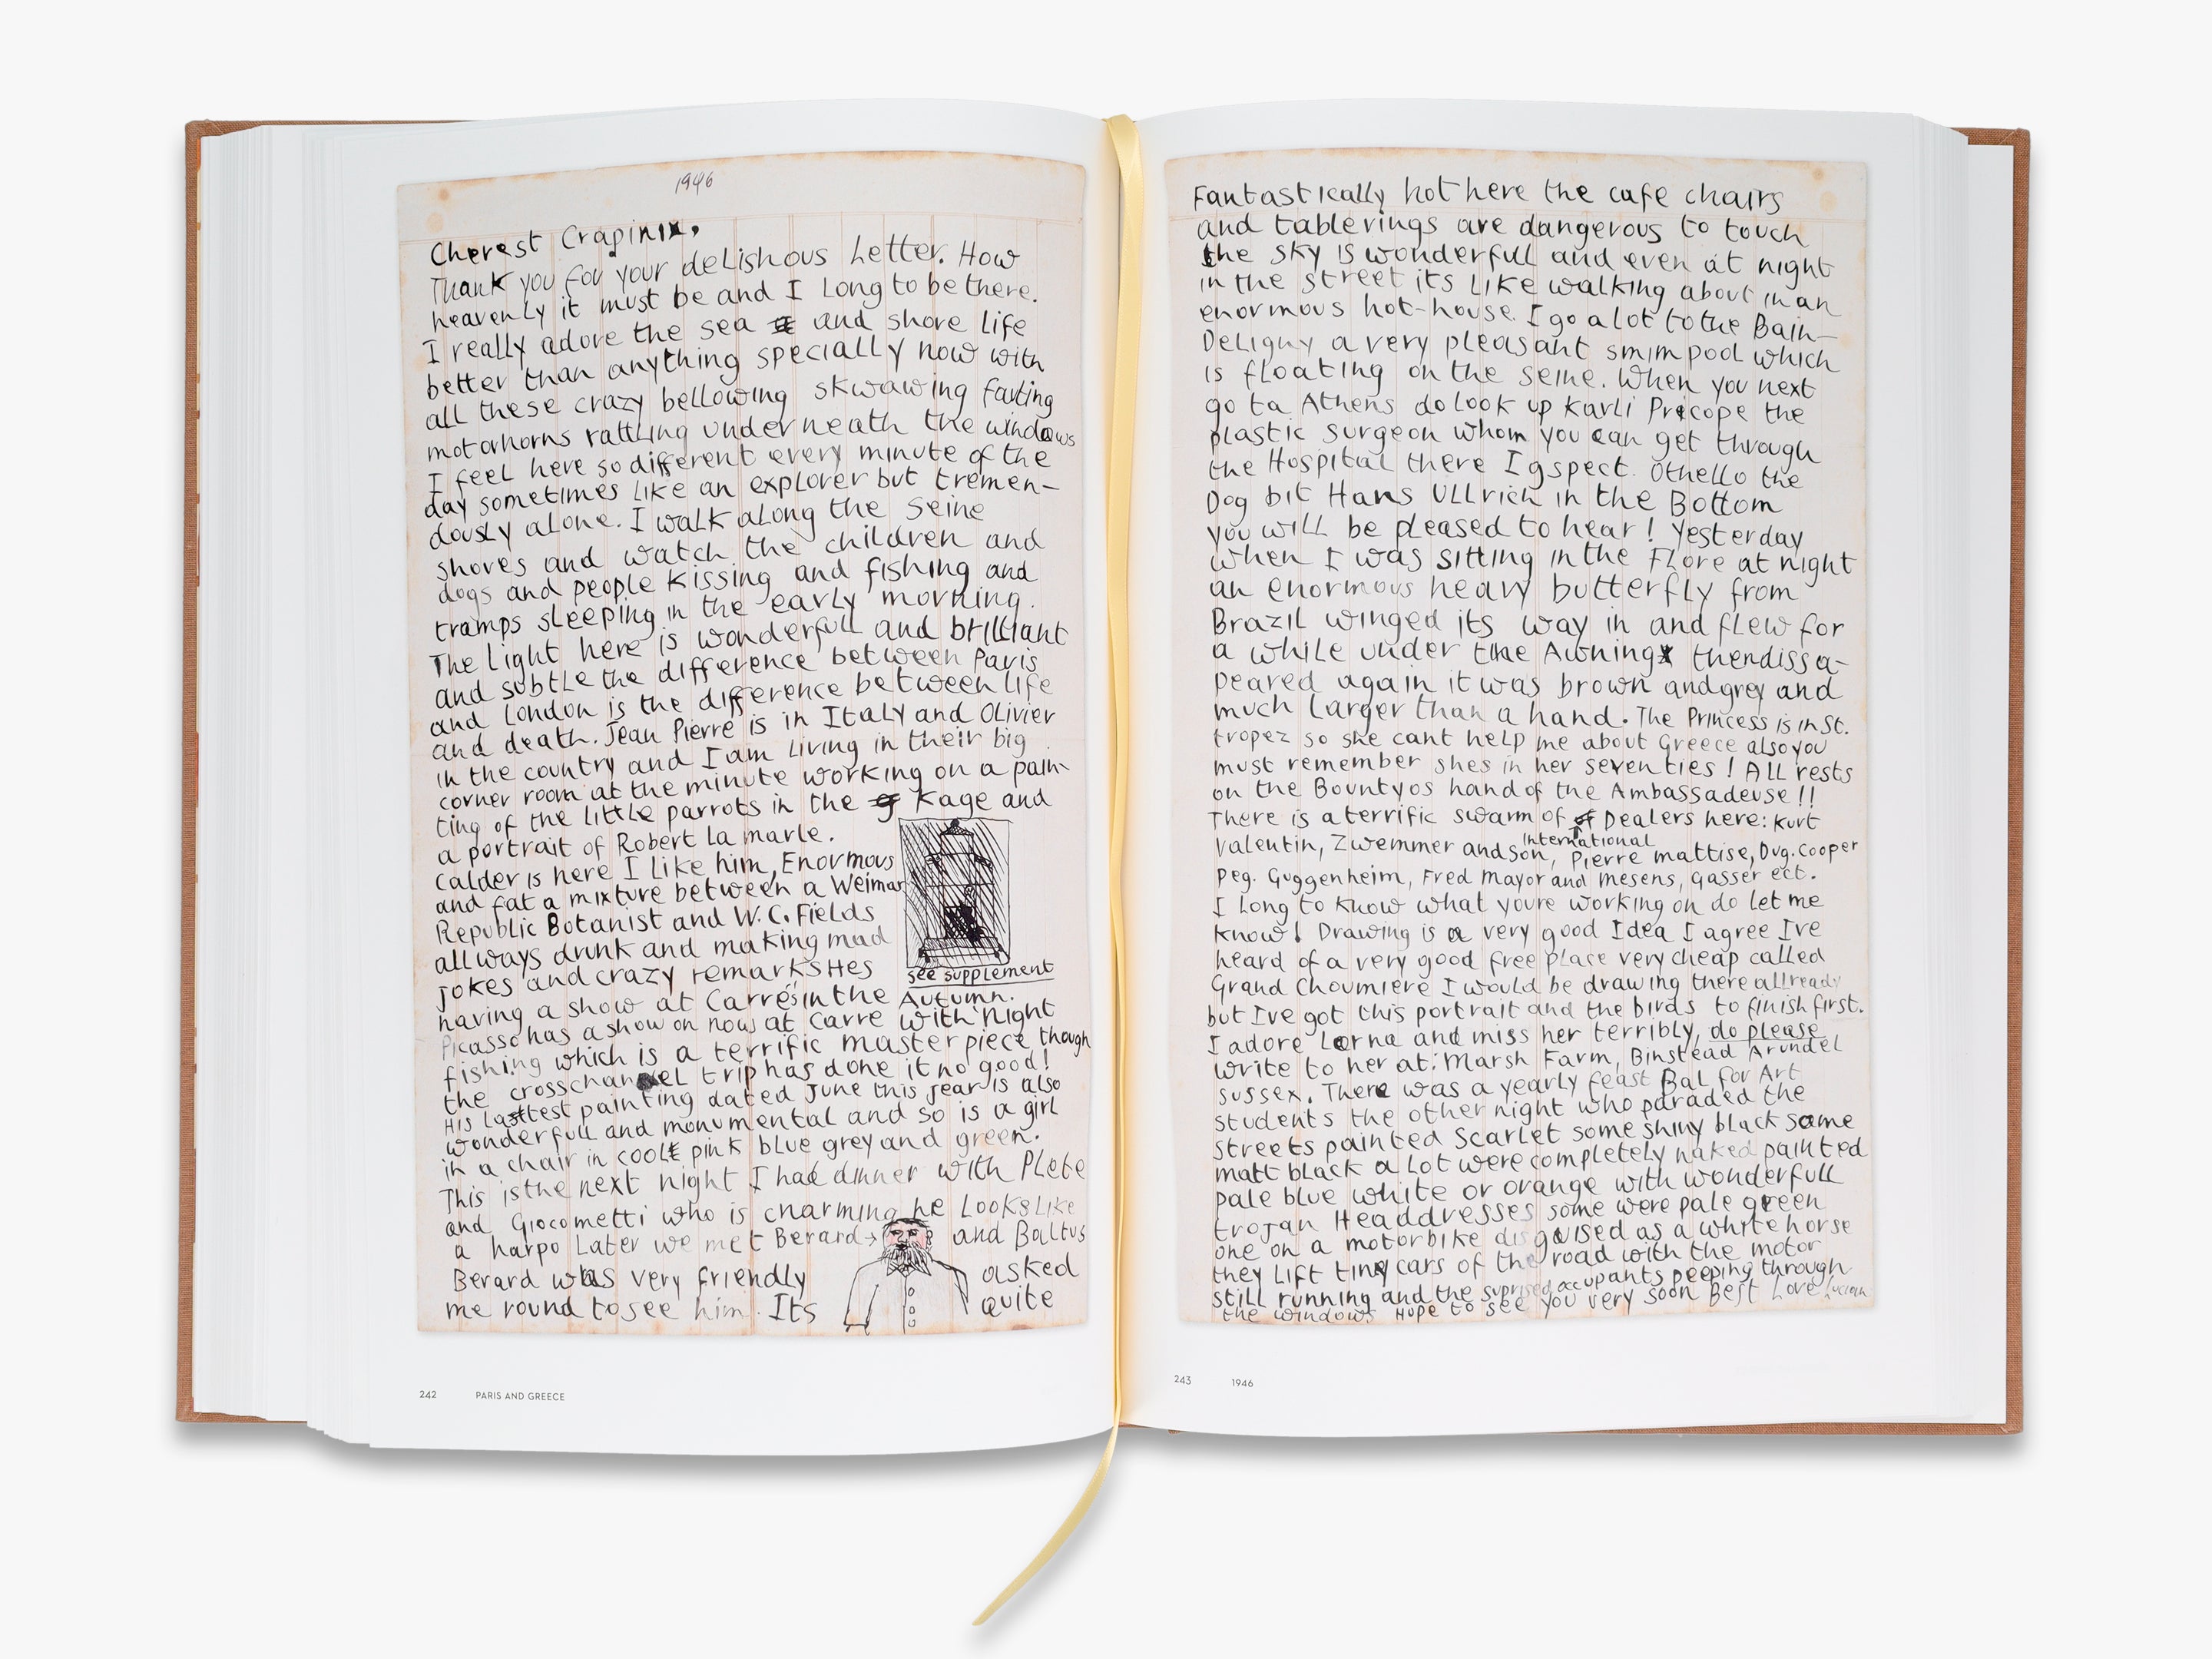 1946
Cherest Crapinix,
Thank you for your delishous Letter. How
heavenly it must be and I Long to be there.
I really adore the sea and shore Life
better than anything specially now with
all these crazy bellowing skwawing farting
motorhorns rattling underneath the windows
I feel here so different every minute of the
day sometimes Like an explorer but tremen-
dously alone. I walk along the Seine
shores and watch the children and
dogs and people Kissing and fishing and
tramps sleeping in the early morning.
The Light here is wonderfull and brilliant
and subtle the difference between Paris
and London is the difference between Life
and death. Jean Pierre is in Italy and Olivier
in the country and I am Living in their big
corner room at the minute working on a pain-
ting of the Little parrots in the Kage and
a portrait of Robert La marle.
Calder is here I Like him, Enormous
and fat a mixture between a Weimar
Republic Botanist and W.C. Fields
allways drunk and making mad
jokes and crazy remarks Hes
see supplement
having a show at Carrés in the Autumn.
Picasso has a show on now at Carre with Night
fishing which is a terrific masterpiece though
the crosschannel trip has done it no good!
His lasttest painting dated June this year is also
wonderfull and monumental and so is a girl
in a chair in cool pink blue grey and green.
This is the next night I had dinner with
and Giocometti who is charming he Looks Like
a harpo Later we met Berard→ and Baltus
Berard was very friendly asked
me round to see him. Its quite
242 PARIS AND GREECE
Fantastically hot here the cafe chairs
and tablerings are dangerous to touch
the sky is wonderfull and even at night
in the street its Like walking about in an
enormous hot-house. I go a lot to the Bain-
Deligny a very pleasant smim pool which
is floating on the seine. When you next
go to Athens do look up Karli Pricope the
plastic surgeon whom you can get through
the Hospital there I gspect. Othello the
Dog bit Hans Ullrich in the Bottom
you will be pleased to hear! Yesterday
when I was sitting in the Flore at night
an enormous heavy butterfly from
Brazil winged its way in and flew for
a while under the Awning then dissa-
peared again it was brown and grey and
much Larger than a hand. The Princess is in St.
tropez so she cant help me about Greece also you
must remember shes in her seventies! ALL rests
on the Bountyos hand of the Ambassadeuse!!
There is a terrific swarm of International Dealers here: Kurt
Valentin, Zwemmer and Son, Pierre mattise, Dug. Cooper
Peg. Guggenheim, Fred Mayor and Mesens, Gasser ect.
I Long to know what youre working on do let me
know! Drawing is a very good Idea I agree Ive
heard of a very good free place very cheap called
Grand Choumiere I would be drawing there allready
but Ive got this portrait and the birds to finish first.
I adore Lorna and miss her terribly, do please
write to her at: Marsh Farm, Binstead Arundel
Sussex. There was a yearly feast Bal for Art
students the other night who paraded the
streets painted Scarlet some shiny black some
matt black a Lot were completely naked painted
pale blue white or orange with wonderfull
trojan Headdresses some were pale green
one on a motorbike disguised as a white horse
they Lift tiny cars of the road with the motor
still running and the suprised occupants peeping through
the windows Hope to see you very soon Best Love Lucian
243 1946